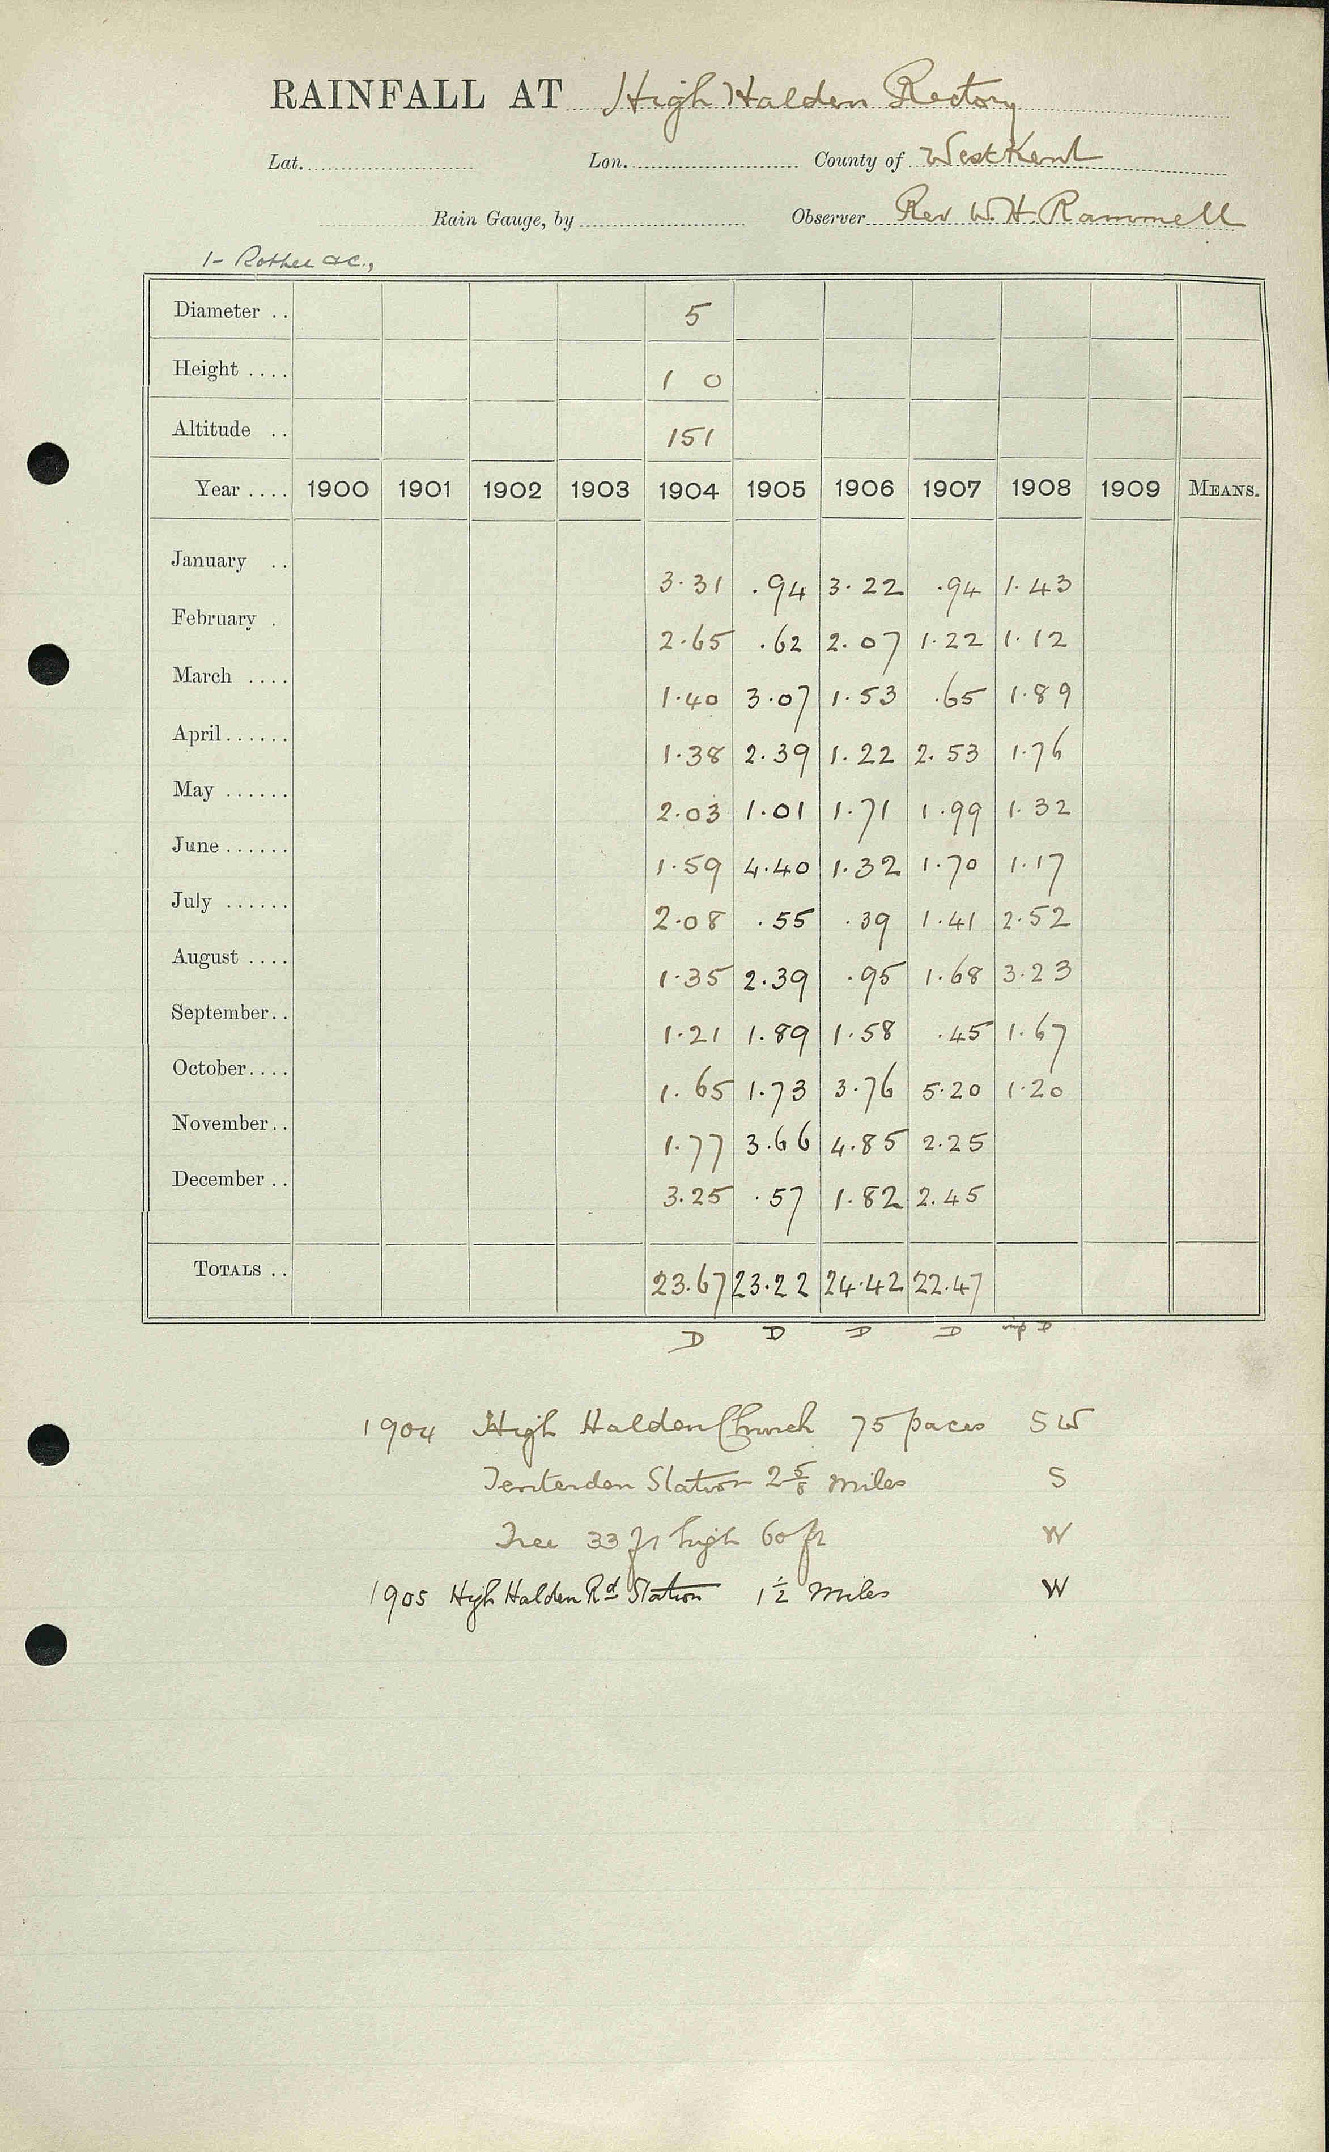 RAINFALL AT High Halden Rectory
Lat. Lon. County of West Kent
Rain Gauge, by Observer Rev W. H. Rammell
1- Rother &c.,
Diameter .. 5
Height .... 1 0
Altitude .. 151
Year .... 1900 1901 1902 1903 1904 1905 1906 1907 1908 1909 MEANS.
January .. 3.31 .94 3.22 .94 1.43
February . 2.65 .62 2.07 1.22 1.12
March .... 1.40 3.07 1.53 .65 1.89
April...... 1.38 2.39 1.22 2.53 1.76
May ...... 2.03 1.01 1.71 1.99 1.32
June...... 1.59 4.40 1.32 1.70 1.17
July ...... 2.08 .55 .39 1.41 2.52
August .... 1.35 2.39 .95 1.68 3.23
September.. 1.21 1.89 1.58 .45 1.67
October.... 1.65 1.73 3.76 5.20 1.20
November.. 1.77 3.66 4.85 2.25
December .. 3.25 .57 1.82 2.45
TOTALS .. 23.67 23.22 24.42 22.47
D D D D imp D
1904 High Halden Church 75 paces SW
Tenterden Station 2 5/8 miles S
Tree 33 ft high 60 ft W
1905 High Halden Rd Station 1 1/2 miles W